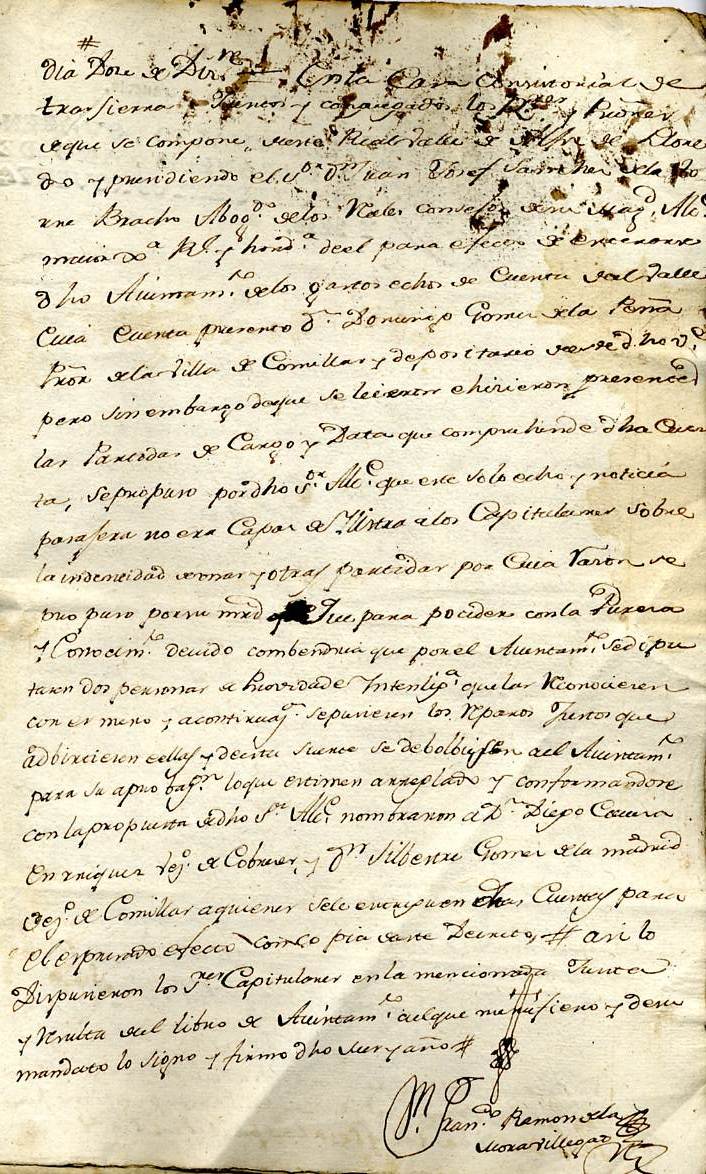 #
dia Doze de Diz.re En la Casa Consistorial de
trasierra Juntos y congregados los S.res y Proñes
de que se compone este Real Valle de Alfoz de Llore
do y presidiendo el S.or D.n Juan Josef Sanchez de la to
rre Bracho Abog.do de los R.les Consejos de su Mag.d Alc.e
maior y hord.a de el para efecto de enterarse
dho Aiuntam.to de los gastos echos de Cuenta del Valle
Cuia Cuenta presento D.n Domingo Gomez de la Peña
Pror de la Villa de Comillas y depositario de dho V.e
pero sin embargo de que se leieron e hizieron presentes
las Partidas de Cargo y Data que comprehende dha Cuen
ta, se propuso por dho S.or Alc.e que este solo echo y noticia
pasajera no era Capaz de Ylustrar a los Capitulares sobre
la indentidad de unas y otras partidas por Cuia Razon se
propuso por su mrd que para proceder con la Pureza
y Conocim.to devido combendria que por el Aiuntam.to se dipu
tasen dos personas de Providad e Intelig.a que las Reconociesen
con esmero y a continuaz.n se pusiesen los Reparos Justos que
adbirtiesen en ellas y de esta suerte se debolbiesen a el Aiuntam.to
para su aprobaz.n lo que estimen arreglado y conformandose
con la propuesta de dho S.or Alc.e nombraron a D.n Diego Cavia
Enrriquez vez.o de Cobreces, y D.n Silbestre Gomez de la madrid
vez.o de Comillas a quienes se le entreguen dhas Cuentas para
el espresado efecto con Copia de este Decreto, # asi lo
Dispusieron los S.res Capitulares en la mencionada Junta
y Resulta del libro de Aiuntam.to a el que me refiero y de su
mandato lo signo y firmo dho dia mes y año #
Fran.co Ramon de la
Mora Villegas